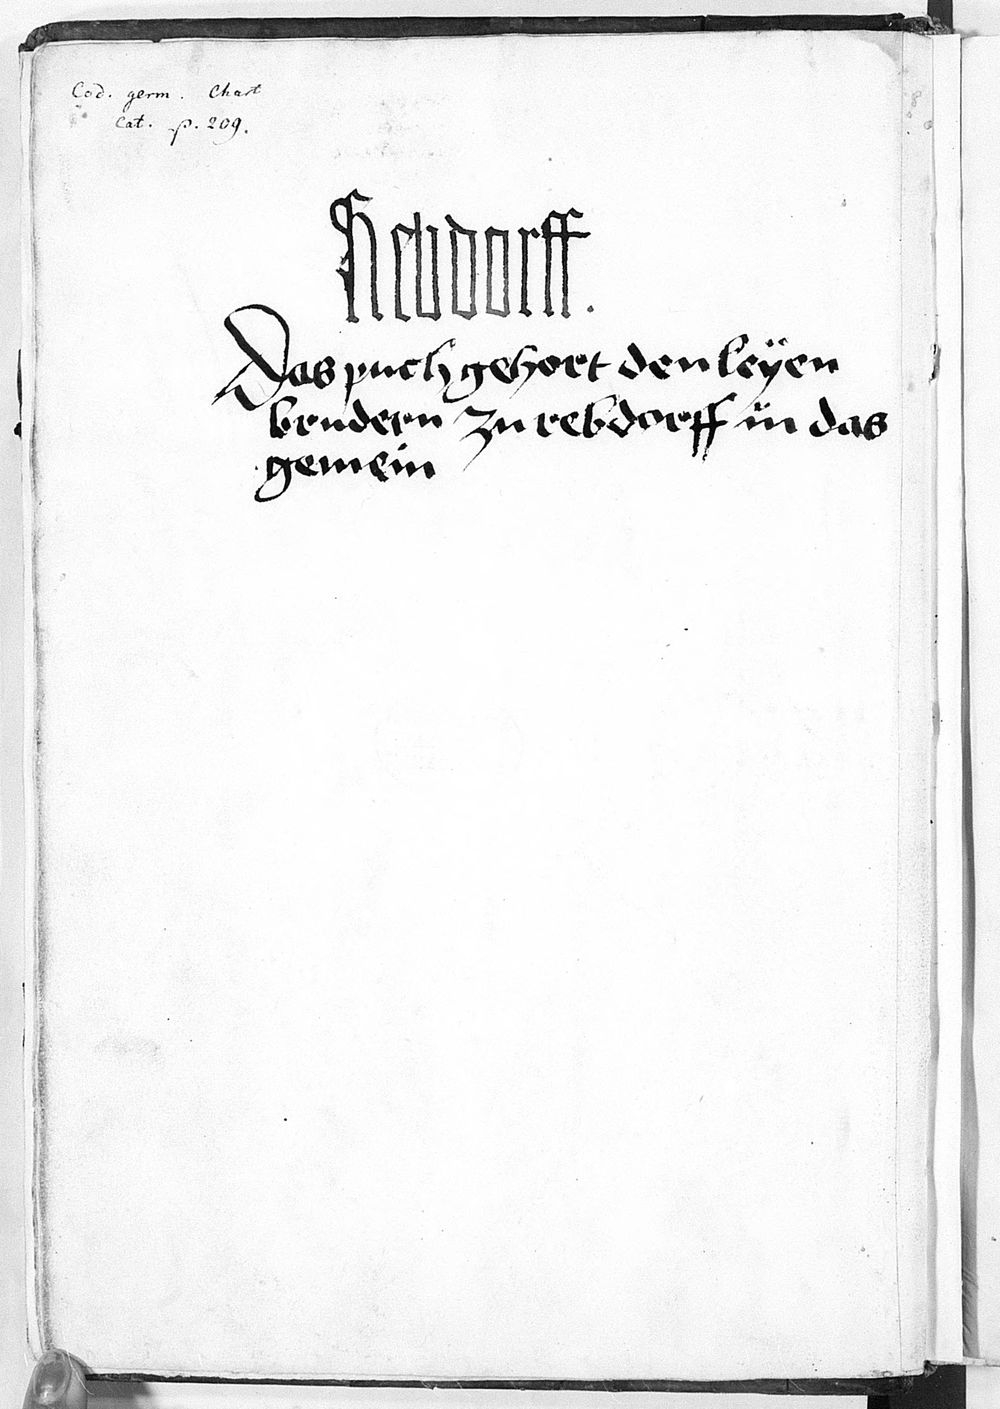 Cod. germ. Chart
Cat. p. 209.
Rebdorff.
Das puch gehort den leÿen
brudern zu rebdorff in das
gemein